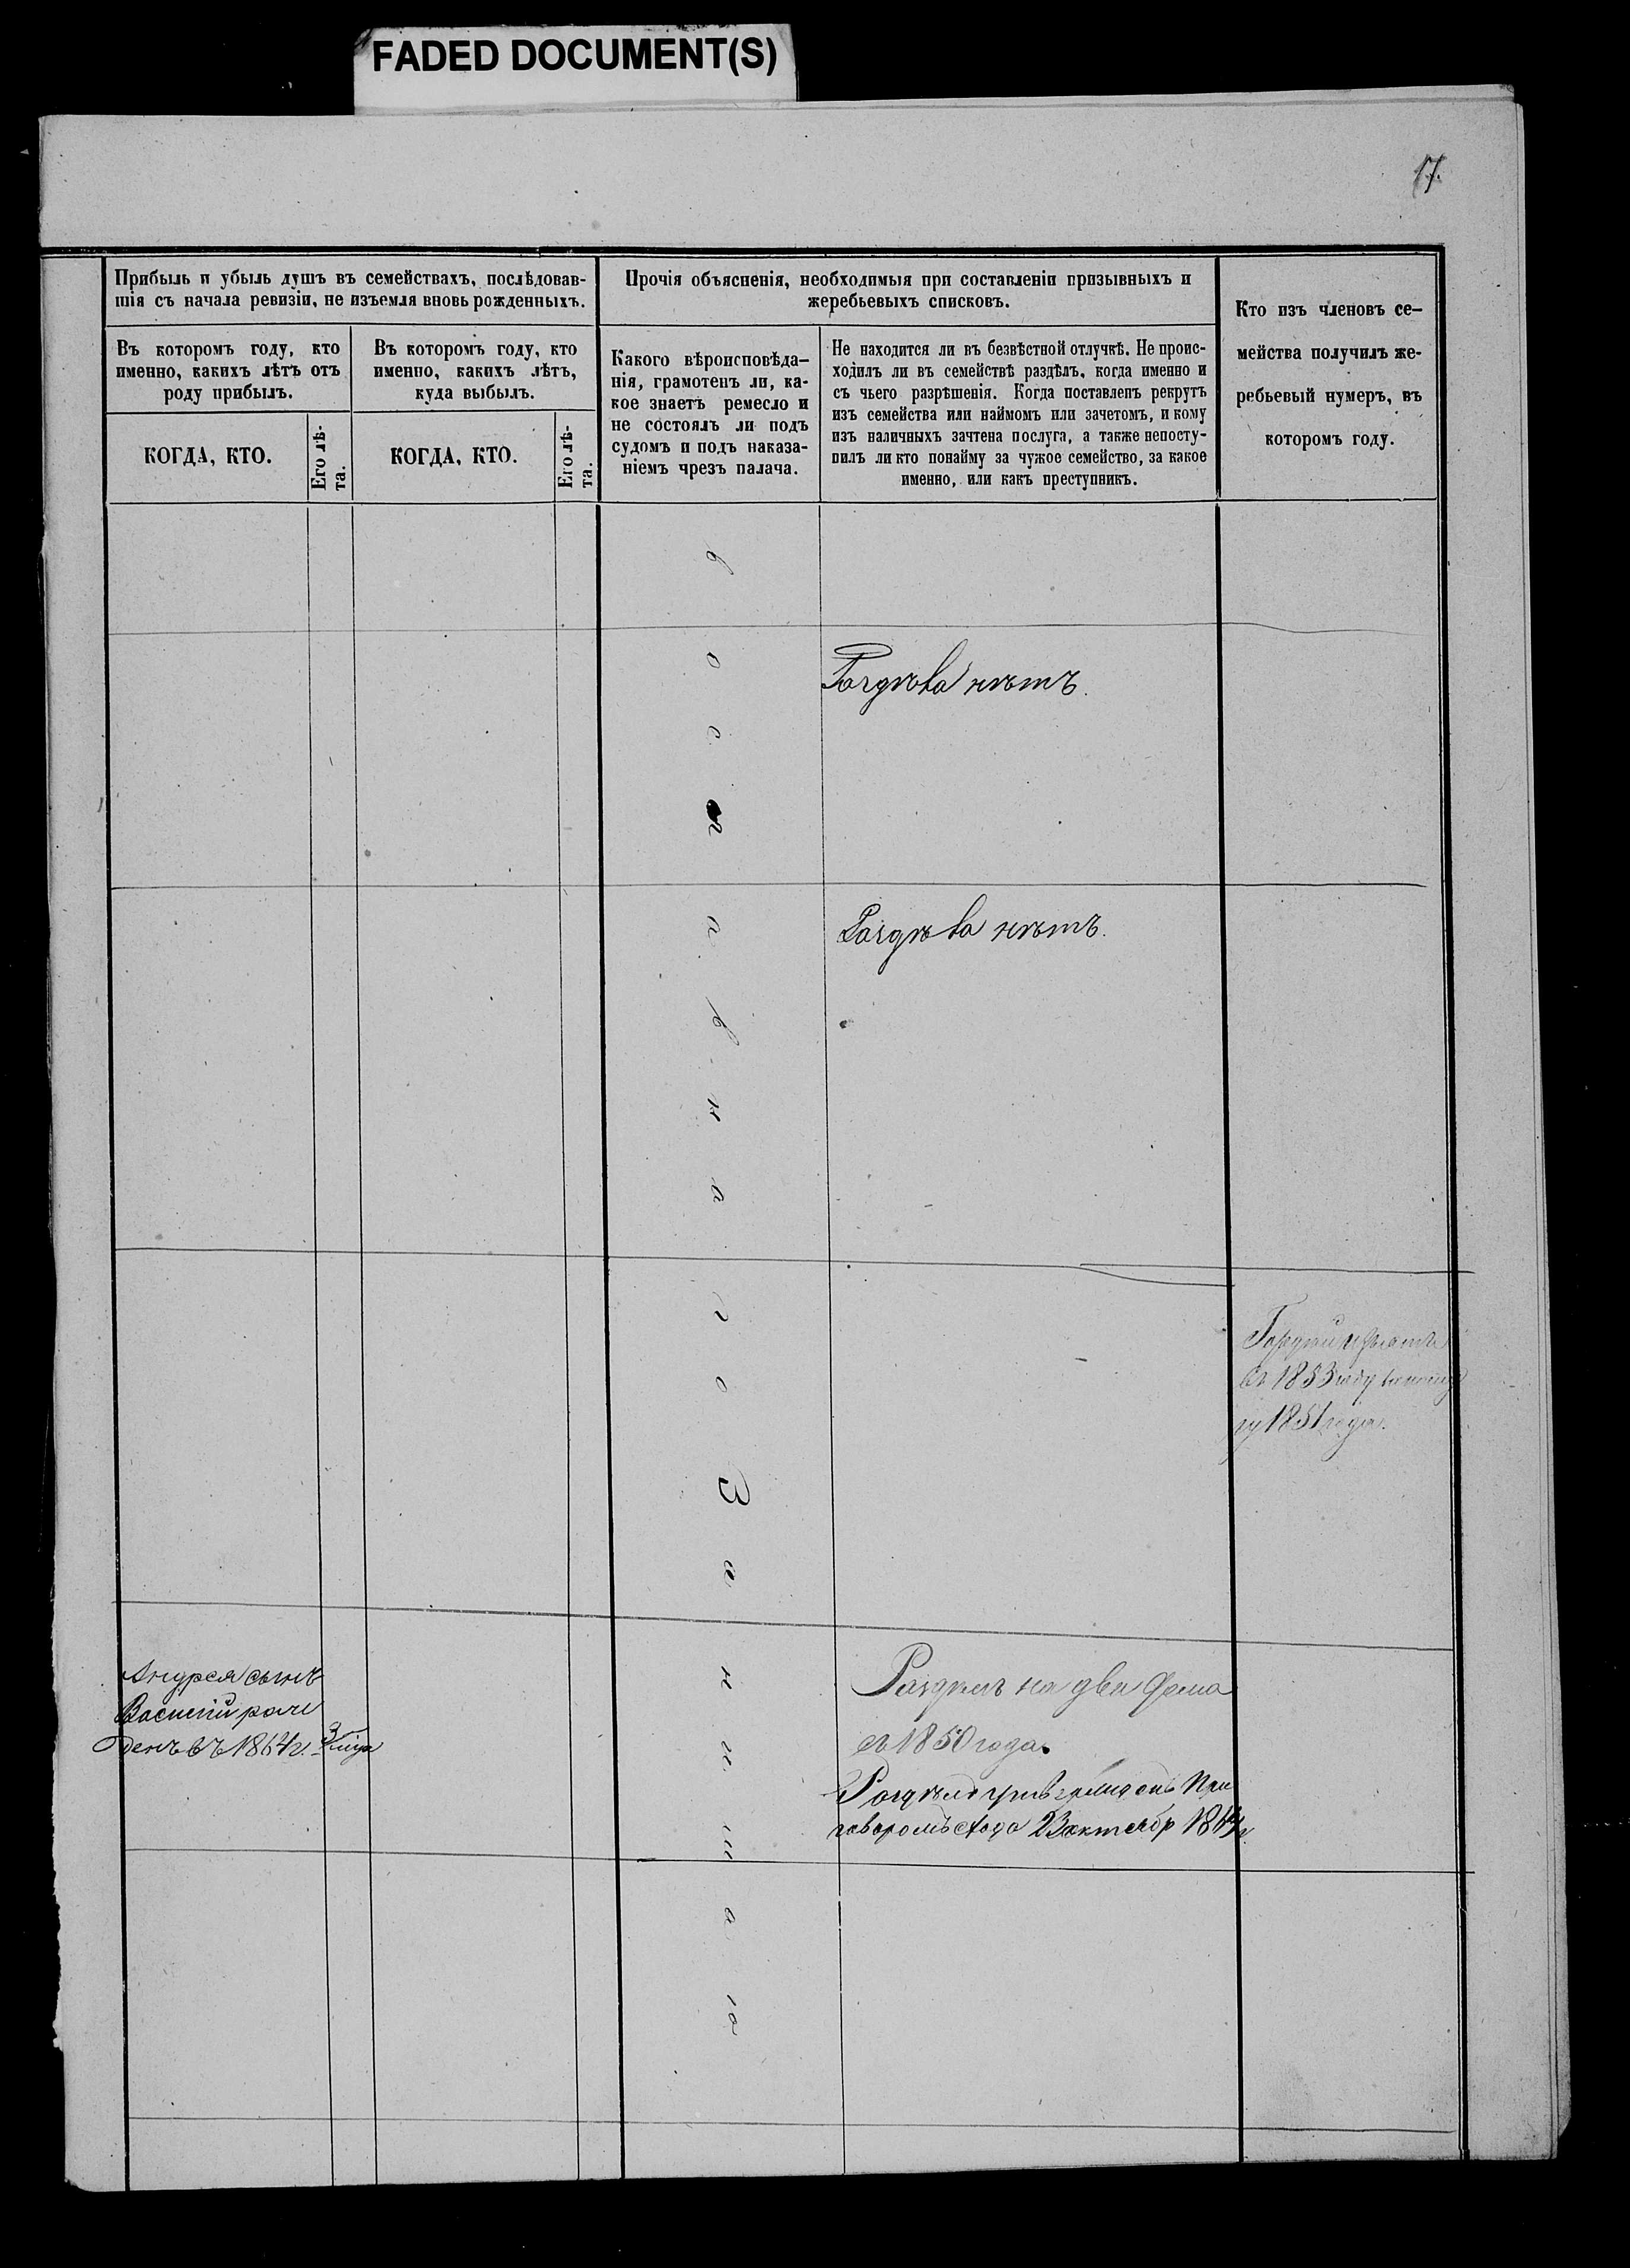 FADED DOCUMENT(S)
17.
Прибыль и убыль душъ въ семействахъ, послѣдовав-
шія съ начала ревизіи, не изъемля вновь рожденныхъ.
Въ которомъ году, кто
именно, какихъ лѣтъ отъ
роду прибылъ.
КОГДА, КТО.
Его лѣ-
та.
Въ которомъ году, кто
именно, какихъ лѣтъ,
куда выбылъ.
КОГДА, КТО.
Его лѣ-
та.
Прочія объясненія, необходимыя при составленіи призывныхъ и
жеребьевыхъ списковъ.
Какого вѣроисповѣда-
нія, грамотенъ ли, ка-
кое знаетъ ремесло и
не состоялъ ли подъ
судомъ и подъ наказа-
ніемъ чрезъ палача.
Не находится ли въ безвѣстной отлучкѣ. Не проис-
ходилъ ли въ семействѣ раздѣлъ, когда именно и
съ чьего разрѣшенія. Когда поставленъ рекрутъ
изъ семейства или наймомъ или зачетомъ, и кому
изъ наличныхъ зачтена послуга, а также непосту-
пилъ ли кто понайму за чужое семейство, за какое
именно, или какъ преступникъ.
Кто изъ членовъ се-
мейства получилъ же-
ребьевый нумеръ, въ
которомъ году.
Раздѣла нѣтъ.
Раздѣла нѣтъ.
въ 1853 году
1851 года.
Андрея сынъ
Василій рож
денъ въ 1864 г.
Раздѣлъ на две
съ 1850 года.
Раздѣлъ При
говоромъ схода 23 октябр